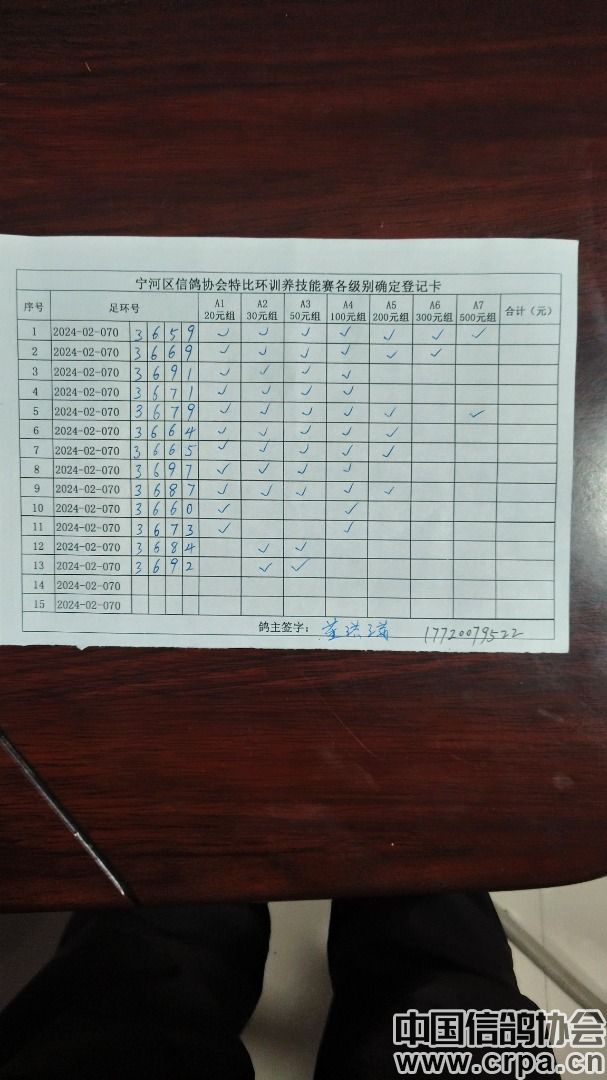 宁河区信鸽协会特比环训养技能赛各级别确定登记卡
序号 足环号 A1 20元组 A2 30元组 A3 50元组 A4 100元组 A5 200元组 A6 300元组 A7 500元组 合计（元）
1 2024-02-070 3659 ✓ ✓ ✓ ✓ ✓ ✓ ✓
2 2024-02-070 3669 ✓ ✓ ✓ ✓ ✓ ✓
3 2024-02-070 3691 ✓ ✓ ✓ ✓
4 2024-02-070 3671 ✓ ✓ ✓ ✓
5 2024-02-070 3679 ✓ ✓ ✓ ✓ ✓ ✓
6 2024-02-070 3664 ✓ ✓ ✓ ✓ ✓
7 2024-02-070 3665 ✓ ✓ ✓ ✓ ✓
8 2024-02-070 3697 ✓ ✓ ✓ ✓
9 2024-02-070 3687 ✓ ✓ ✓ ✓ ✓
10 2024-02-070 3660 ✓ ✓
11 2024-02-070 3673 ✓ ✓
12 2024-02-070 3684 ✓ ✓
13 2024-02-070 3692 ✓ ✓
14 2024-02-070
15 2024-02-070
鸽主签字： 17720079522
中国信鸽协会
www.crpa.cn